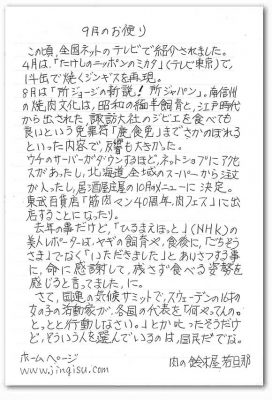 9月のお便り
この頃、全国ネットのテレビで紹介されました。
4月は、「たけしのニッポンのミカタ」(テレビ東京)で、
1斗缶で焼くジンギスを再現。
8月は「所ジョージの新説!所ジャパン」。南信州
の焼肉文化は、昭和の緬羊飼育と、江戸時代
から出された、諏訪大社のジビエを食べても
良いという免罪符「鹿食免」までさかのぼれる
といった内容で、反響も大きかった。
ウチのサーバーがダウンするほど、ネットショプにアクセ
スがあったし、北海道全域のスーパーから注文
が入ったし、居酒屋庄屋の10月メニューに決定。
東武百貨店「筋肉マン40周年、肉フェス」に出
店することになったり。
去年の事だけど、「ひるまえほっと」(NHK)の
美人レポーターは、ヤギの飼育や、食後に、「ごちそう
さま」でなく「いただきました」と、あいさつする事
に、命に感謝して、残さず食べる姿勢を
感じると言ってました、に。
さて、国連の気候サミットで、スウェーデンの16才の
女の子の活動家が、各国の代表を「何やってんの。
と、っとと行動しなさい。」とか叱ったそうだけ
ど、そういう人を選んでいるのは、国民だでな。
ホームページ
www.jingisu.com
肉の鈴木屋 若旦那